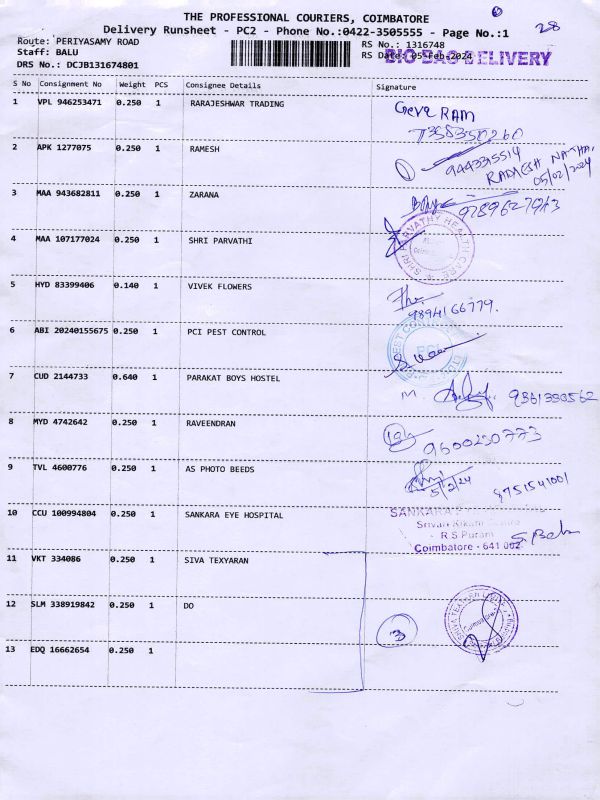 THE PROFESSIONAL COURIERS, COIMBATORE
28
Delivery Runsheet - PC2 - Phone No.:0422-3505555 - Page No.:1
Route: PERIYASAMY ROAD
RS No.: 1316748
Staff: BALU
RS Date: 05-Feb-2024
BIG BAG DELIVERY
DRS No.: DCJB131674801
S No Consignment No Weight PCS Consignee Details Signature
1 VPL 946253471 0.250 1 RARAJESHWAR TRADING
RAM
7358350260
2 APK 1277075 0.250 1 RAMESH
9443315514
05/02/2024
3 MAA 943682811 0.250 1 ZARANA
4 MAA 107177024 0.250 1 SHRI PARVATHI
SHRI PARVATHY HEALTH CARE
5 HYD 83399406 0.140 1 VIVEK FLOWERS
9894166779.
6 ABI 20240155675 0.250 1 PCI PEST CONTROL
7 CUD 2144733 0.640 1 PARAKAT BOYS HOSTEL
M
8 MYD 4742642 0.250 1 RAVEENDRAN
9600230773
9 TVL 4600776 0.250 1 AS PHOTO BEEDS
5/2/24
8751541001
10 CCU 100994804 0.250 1 SANKARA EYE HOSPITAL
SANKARA
R.S Puram
Coimbatore - 641 002
11 VKT 334086 0.250 1 SIVA TEXYARAN
12 SLM 338919842 0.250 1 DO
3
13 EDQ 16662654 0.250 1